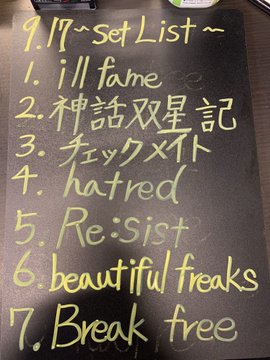 9.17~set List~
1. ill fame
2. 神話双星記
3. チェックメイト
4. hatred
5. Re:sist
6. beautiful freaks
7. Break free